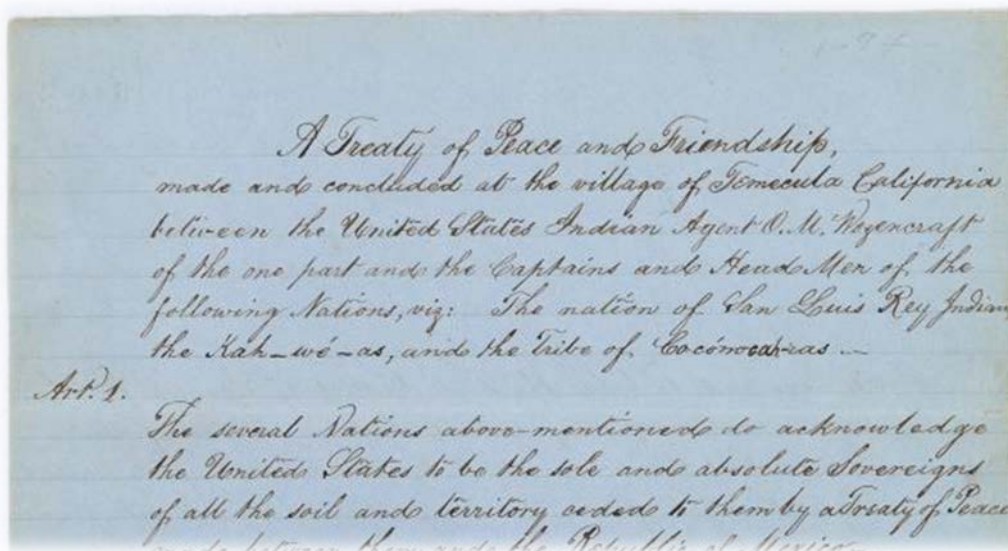 A Treaty of Peace and Friendship,
made and concluded at the village of Temecula California
between the United States Indian Agent O. M. Wozencraft
of the one part and the Captains and Head Men of the
following Nations, viz: The nation of San Luis Rey Indian
the Kah-wé-as, and the Tribe of Cocómcahras —
Art. 1.
The several Nations above-mentioned do acknowledge
the United States to be the sole and absolute Sovereigns
of all the soil and territory ceded to them by a Treaty of Peace
made between them and the Republic of Mexico